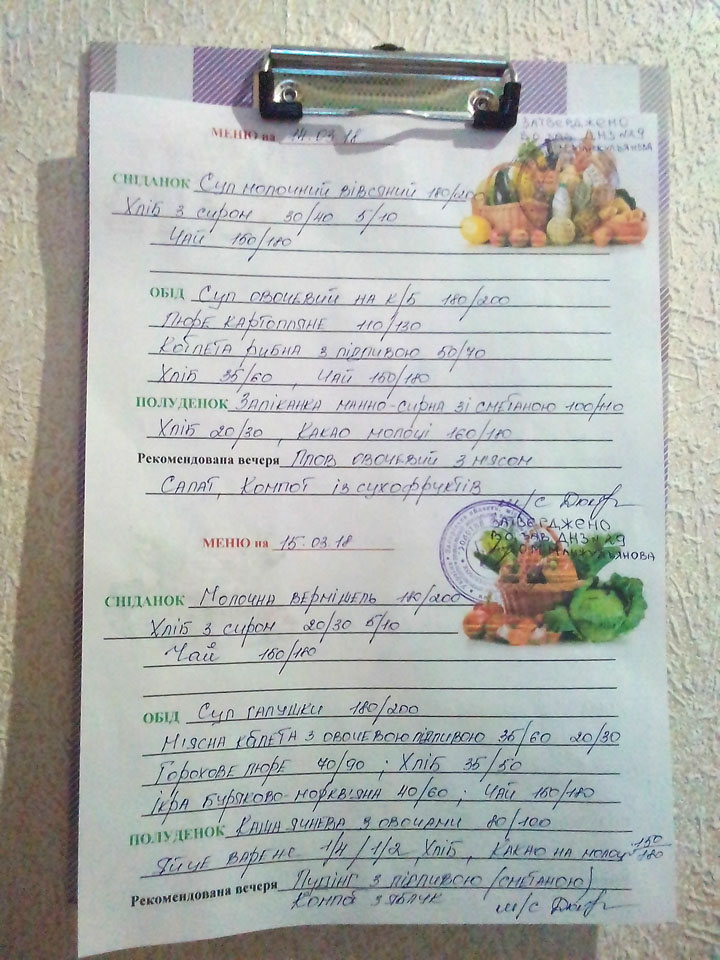 МЕНЮ на 14.03.18
ЗАТВЕРДЖЕНО
ВО ЗАВ ДНЗ №29
СНІДАНОК Суп молочний вівсяний 180/20
Хліб з сиром 30/40 5/10
Чай 150/180
ОБІД Суп овочевий на к/б 180/200
Пюре картопляне 110/130
Котлета рибна з підливою 50/70
Хліб 35/60 , Чай 150/180
ПОЛУДЕНОК Запіканка манно-сирна зі сметаною 100/110
Хліб 20/30 , Какао молоці 160/180
Рекомендована вечеря Плов овочевий з м'ясом
Салат, Компот із сухофруктів
м/с
ЗАТВЕРДЖЕНО
ВО ЗАВ ДНЗ №29
МЕНЮ на 15.03.18
СНІДАНОК Молочна вермішель 180/200
Хліб з сиром 20/30 5/10
Чай 150/180
ОБІД Суп галушки 180/200
М'ясна котлета з овочевою підливою 35/60 20/30
Горохове пюре 70/90 ; Хліб 35/50
Ікра буряково-морквяна 40/60 ; Чай 150/180
ПОЛУДЕНОК Каша ячнева з овочами 80/100
Яйце варене 1/4 / 1/2 , Хліб , Какао на молоці 150/180
Рекомендована вечеря Пудінг з підливою (сметаною)
Компот з яблук м/с